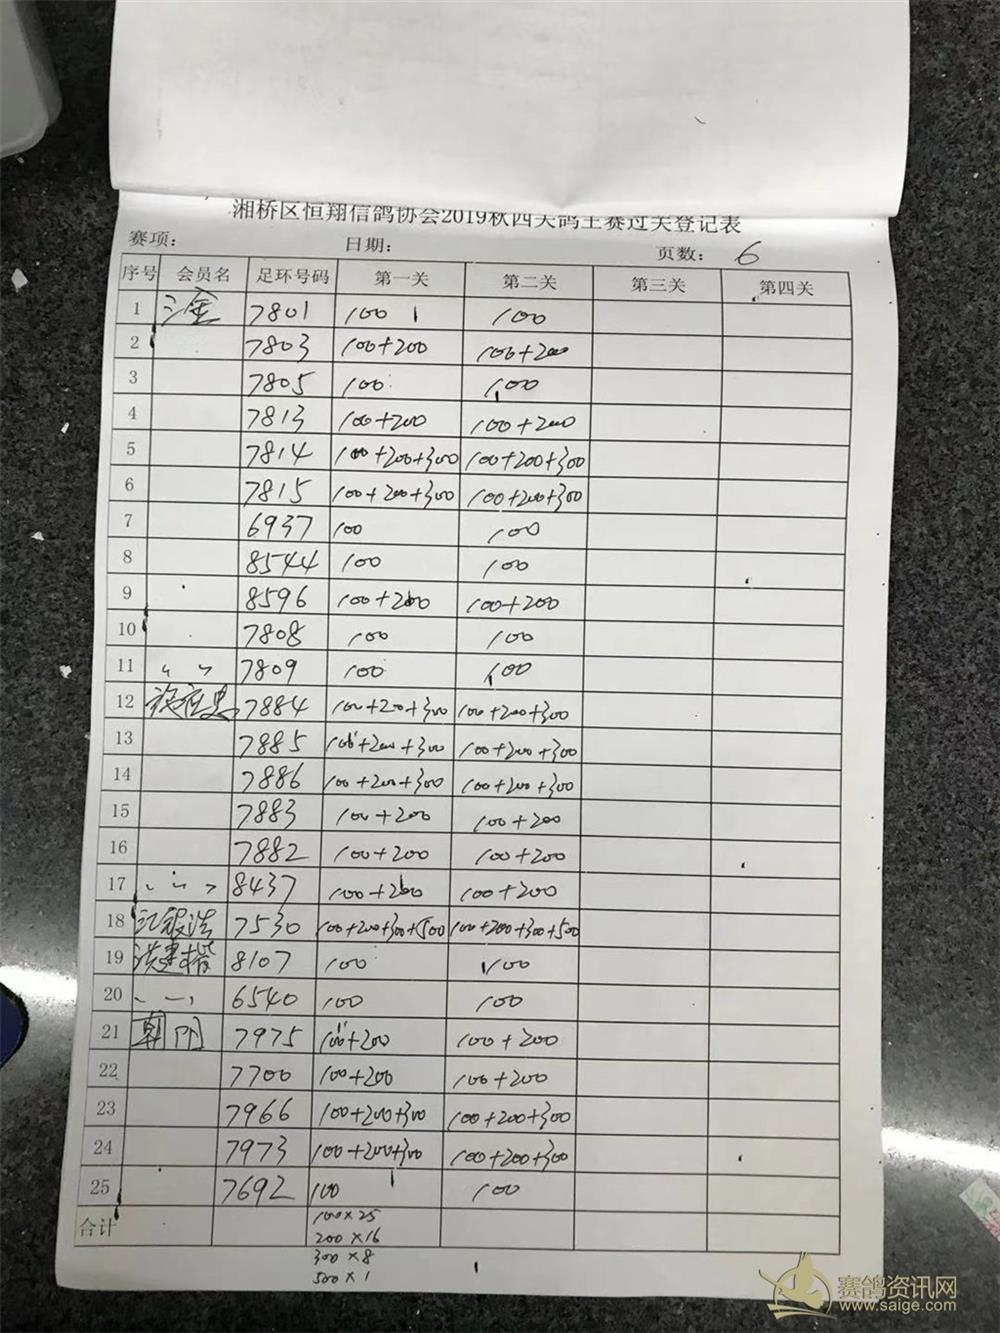 湘桥区恒翔信鸽协会2019秋四关鸽王赛过关登记表
赛项: 日期: 页数: 6
序号 会员名 足环号码 第一关 第二关 第三关 第四关
1 7801 100 100
2 7803 100+200 100+200
3 7805 100 100
4 7813 100+200 100+200
5 7814 100+200+300 100+200+300
6 7815 100+200+300 100+200+300
7 6937 100 100
8 8544 100 100
9 8596 100+200 100+200
10 7808 100 100
11 〃 7809 100 100
12 7884 100+200+300 100+200+300
13 7885 100+200+300 100+200+300
14 7886 100+200+300 100+200+300
15 7883 100+200 100+200
16 7882 100+200 100+200
17 〃 8437 100+200 100+200
18 江银浩 7530 100+200+300+500 100+200+300+500
19 洪建楷 8107 100 100
20 〃 6540 100 100
21 朝阳 7975 100+200 100+200
22 7700 100+200 100+200
23 7966 100+200+300 100+200+300
24 7973 100+200+300 100+200+300
25 7692 100 100
合计 100×25
200×16
300×8
500×1
赛鸽资讯网
www.saige.com